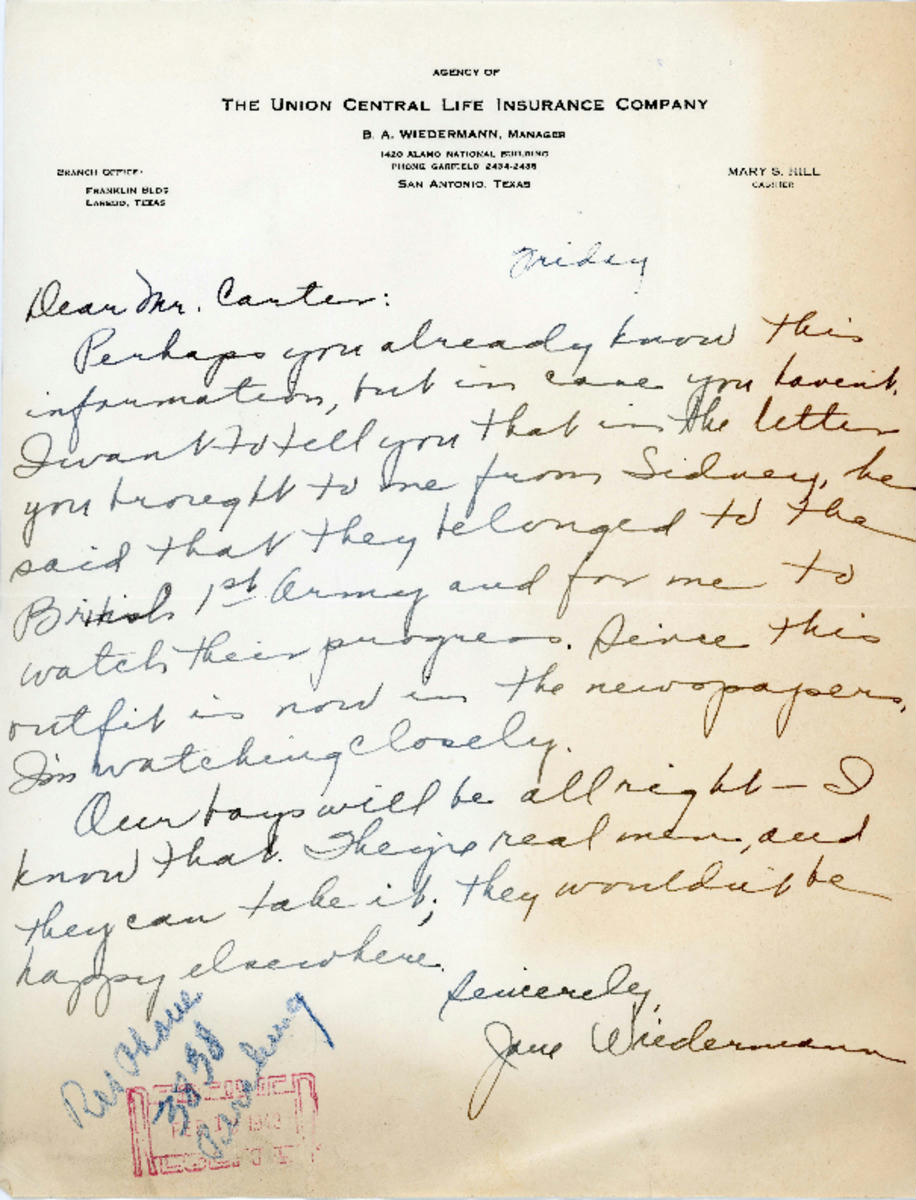 AGENCY OF
THE UNION CENTRAL LIFE INSURANCE COMPANY
B. A. WIEDERMANN, MANAGER
1420 ALAMO NATIONAL BUILDING
PHONE GARFIELD 2434-2435
SAN ANTONIO, TEXAS
BRANCH OFFICE:
FRANKLIN BLDG
LAREDO, TEXAS
MARY S. HILL
CASHIER
Friday
Dear Mr. Carter:
Perhaps you already know this
information, but in case you haven't,
I want to tell you that in the letter
you brought to me from Sidney, he
said that they belonged to the
British 1st Army and for me to
watch their progress. Since this
outfit is now in the newspapers,
I'm watching closely.
Our boys will be all right — I
know that. They're real men, and
they can take it; they wouldn't be
happy elsewhere.
Sincerely,
Jane Wiedermann
Res Phone